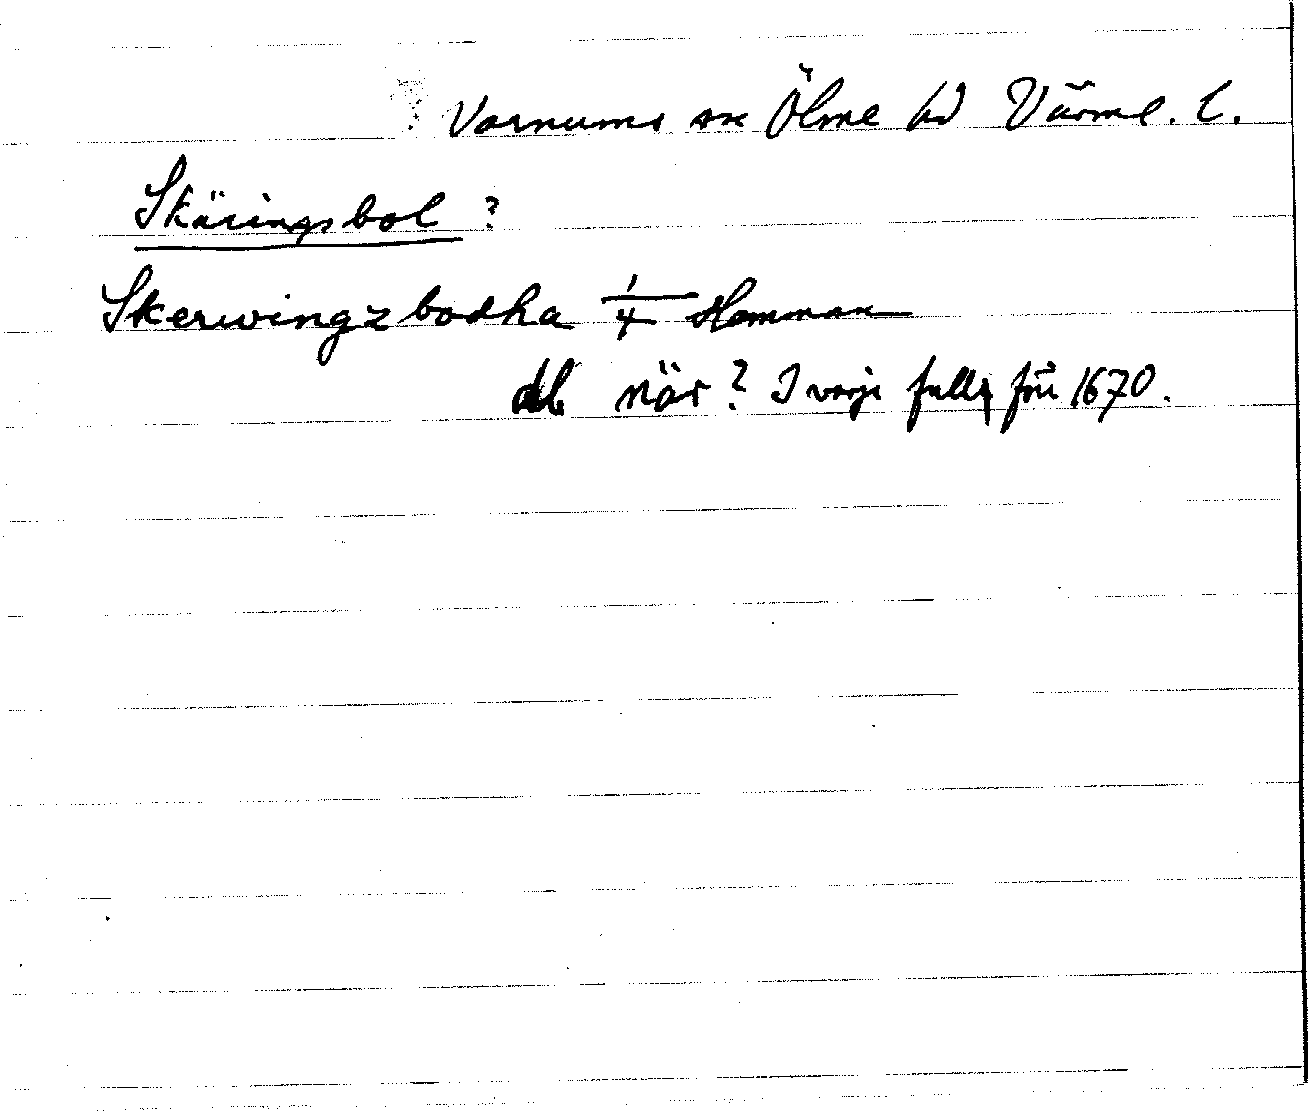 Varnums sn Ölme hd Värml. l.
Skäringsbol ?
Skerwingzbodha 1/4 Hemman
db när? I varje fall för 1670.